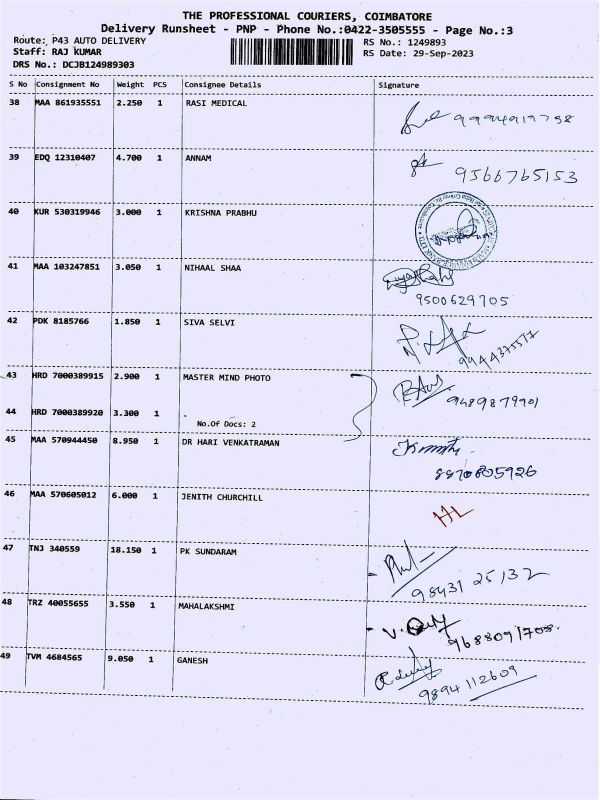 THE PROFESSIONAL COURIERS, COIMBATORE
Delivery Runsheet - PNP - Phone No.:0422-3505555 - Page No.:3
Route: P43 AUTO DELIVERY RS No.: 1249893
Staff: RAJ KUMAR RS Date: 29-Sep-2023
DRS No.: DCJB124989303
S No Consignment No Weight PCS Consignee Details Signature
38 MAA 861935551 2.250 1 RASI MEDICAL
9994919758
39 EDQ 12310407 4.700 1 ANNAM
9566765153
40 KUR 530319946 3.000 1 KRISHNA PRABHU
41 MAA 103247851 3.050 1 NIHAAL SHAA
9500629705
42 PDK 8185766 1.850 1 SIVA SELVI
9944375577
43 HRD 7000389915 2.900 1 MASTER MIND PHOTO
9489879901
44 HRD 7000389920 3.300 1
No.Of Docs: 2
45 MAA 570944450 8.950 1 DR HARI VENKATRAMAN
8870805926
46 MAA 570605012 6.000 1 JENITH CHURCHILL
47 TNJ 340559 18.150 1 PK SUNDARAM
98431 25132
48 TRZ 40055655 3.550 1 MAHALAKSHMI
9688091708.
49 TVM 4684565 9.050 1 GANESH
9894112609